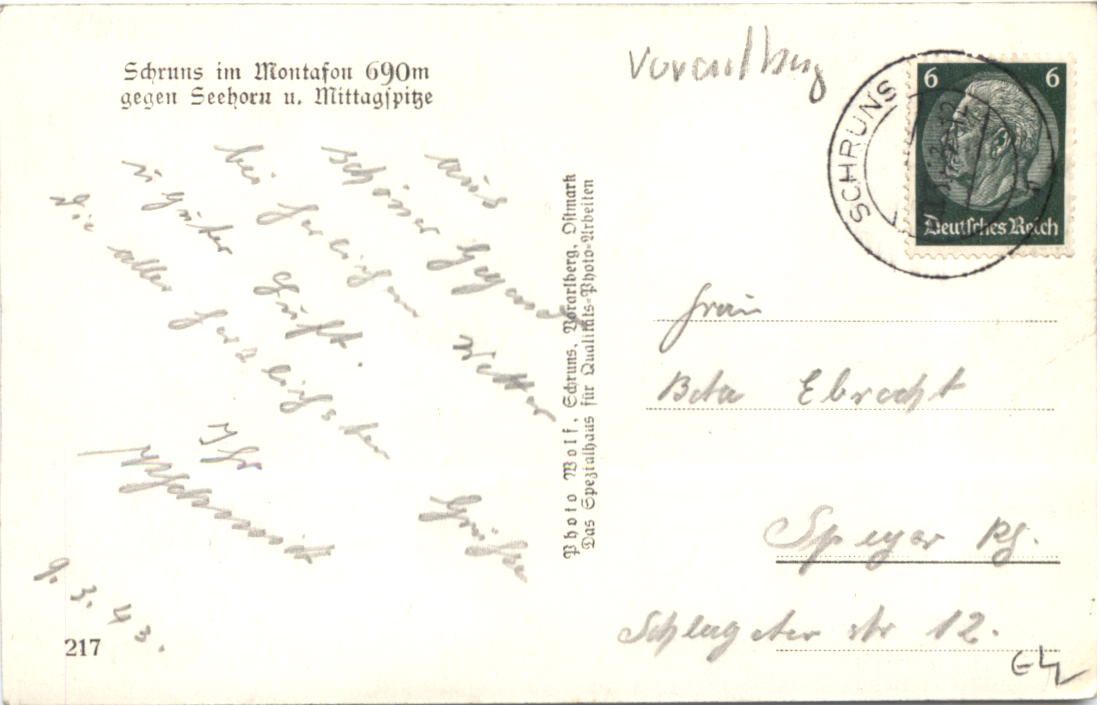 Schruns im Montafon 690m
gegen Seehorn u. Mittagspitze
Vorarlberg
SCHRUNS
6 6
Deutsches Reich
aus
schöner Gegend
bei herlichem Wetter
u guter Luft.
die aller herzlichsten
Grüße
Ihr
9.3.43.
217
Photo Wolf, Schruns, Vorarlberg, Ostmark
Das Spezialhaus für Qualitäts-Photo-Arbeiten
Frau
Beta Ebrecht
Speyer Rh.
Schlageter str 12.